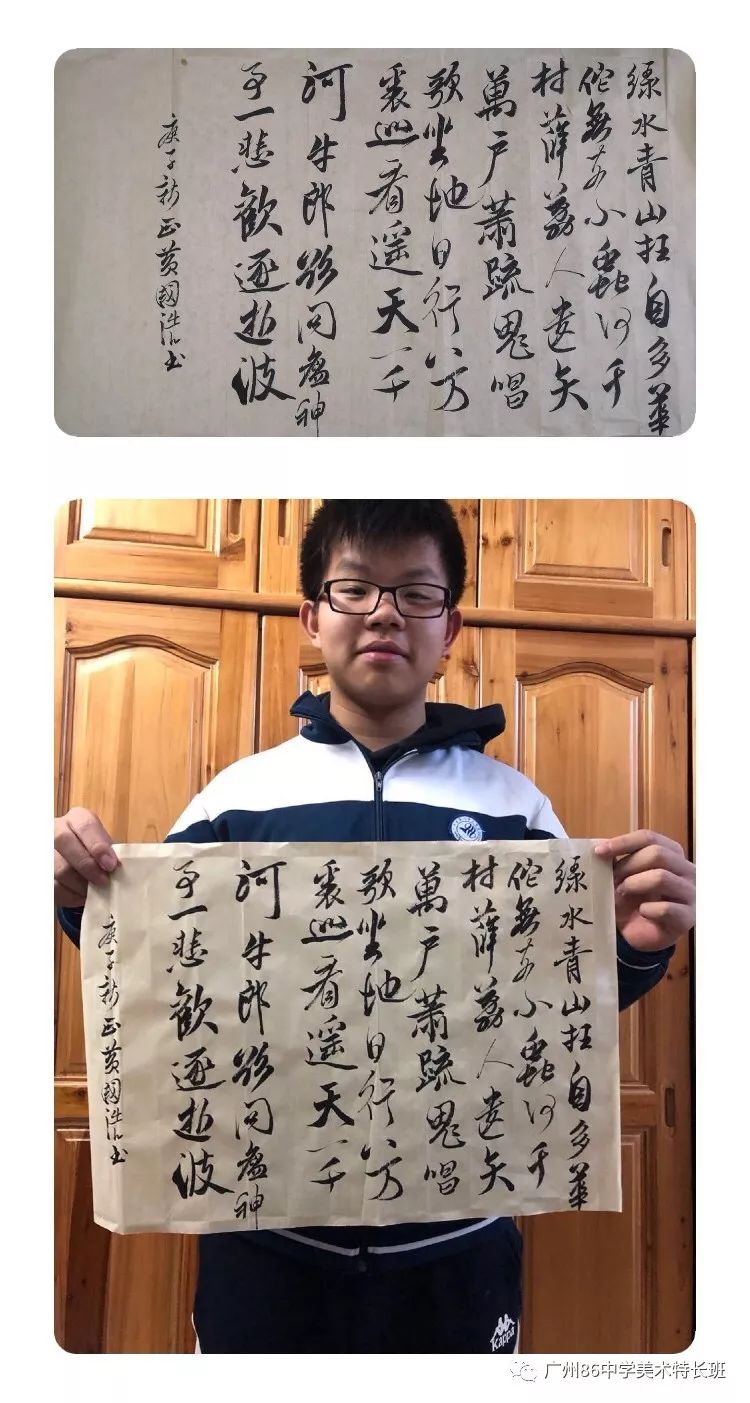 綠水青山枉自多華
佗無奈小蟲何千
村薜荔人遺矢
萬户蕭疏鬼唱
歌坐地日行八万
裏巡看遥天一千
河牛郎欲问瘟神
事一悲歡逐逝波
庚子新正黄國浩书
綠水青山枉自多華
佗無奈小蟲何千
村薜荔人遺矢
萬户蕭疏鬼唱
歌坐地日行八万
裏巡看遥天一千
河牛郎欲问瘟神
事一悲歡逐逝波
庚子新正黄國浩书
Kappa
广州86中学美术特长班